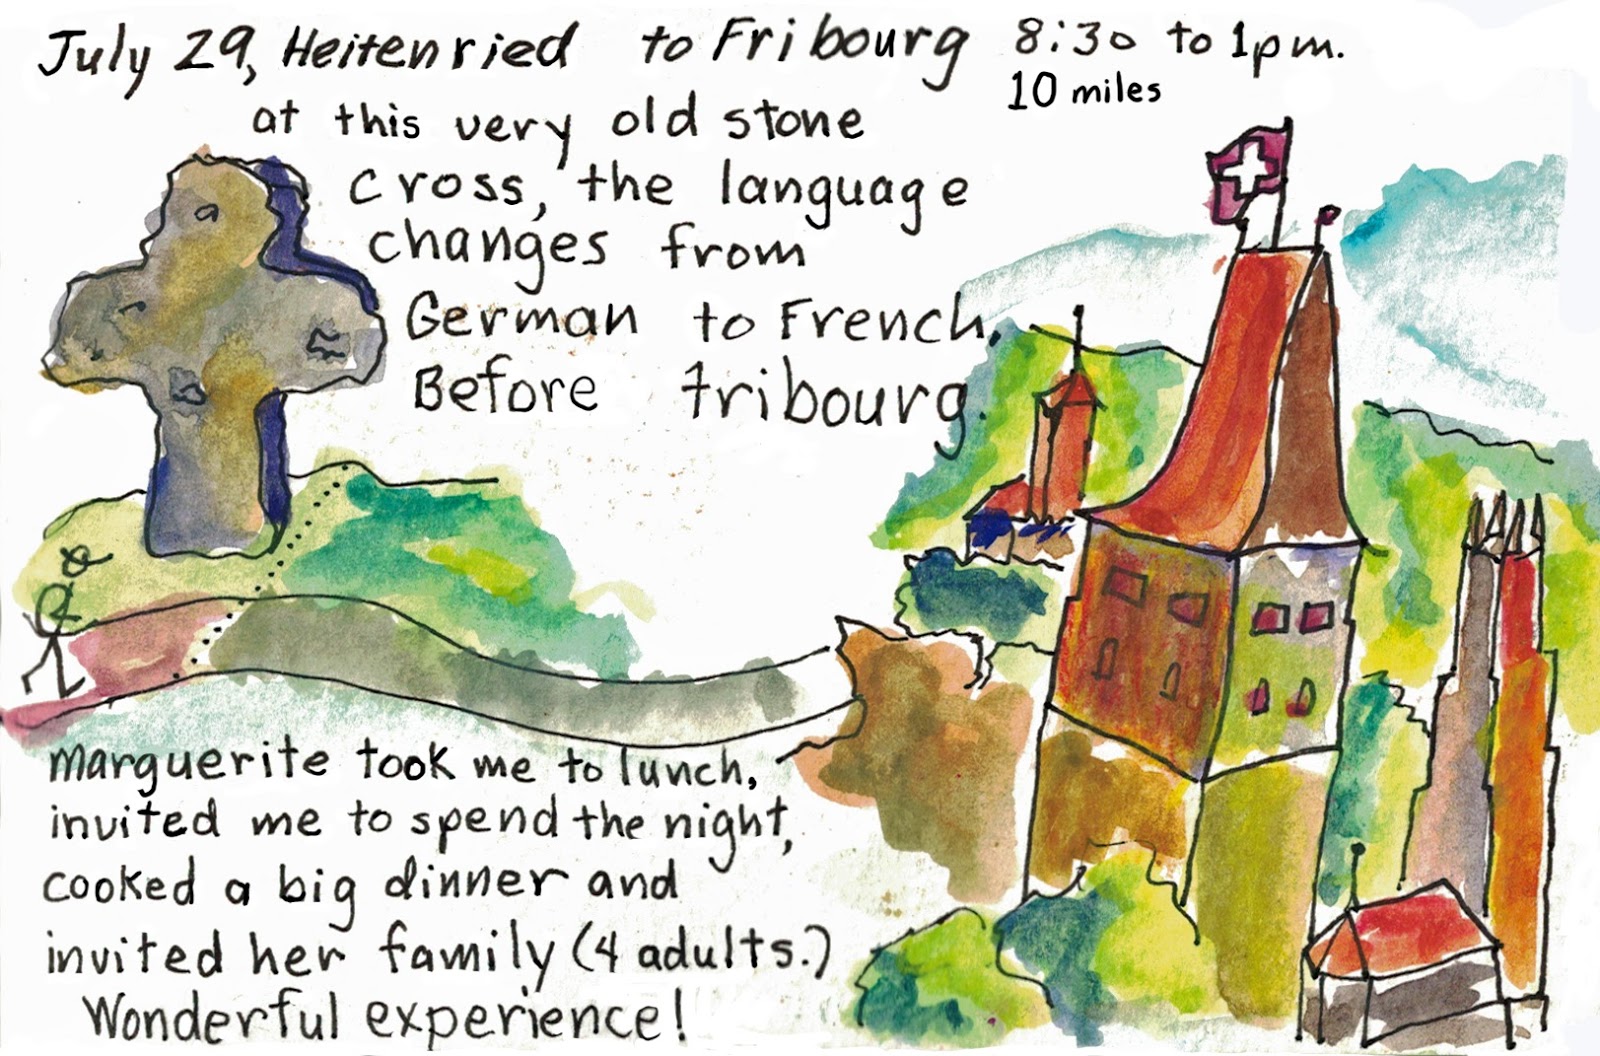 July 29, Heitenried to Fribourg 8:30 to 1pm.
10 miles
at this very old stone
cross, the language
changes from
German to French.
Before fribourg.
Marguerite took me to lunch,
invited me to spend the night,
cooked a big dinner and
invited her family (4 adults.)
Wonderful experience!